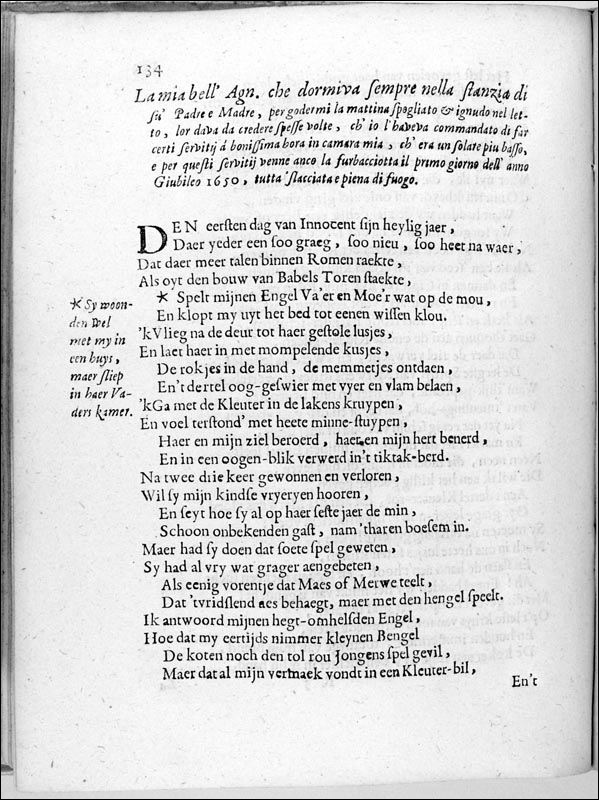 134
La mia bell' Agn. che dormiva sempre nella stanzia di
su' Padre e Madre, per godermi la mattina spogliato & ignudo nel let-
to, lor dava da credere spesse volte, ch' io l'haveva commandato di far
certi servitij à bonissima hora in camara mia, ch' era un solare piu basso,
e per questi servitij venne anco la furbacciotta il primo giorno dell' anno
Giubileo 1650, tutta 'slacciata e piena di fuogo.
DEN eersten dag van Innocent sijn heylig jaer,
Daer yeder een soo graeg, soo nieu, soo heet na waer,
Dat daer meer talen binnen Romen raekte,
Als oyt den bouw van Babels Toren staekte,
* Spelt mijnen Engel Va'er en Moe'r wat op de mou,
En klopt my uyt het bed tot eenen wissen klou.
'kVlieg na de deur tot haer gestole lusjes,
En laet haer in met mompelende kusjes,
De rokjes in de hand, de memmetjes ontdaen,
En't dertel oog-geswier met vyer en vlam belaen,
'kGa met de Kleuter in de lakens kruypen,
En voel terstond' met heete minne-stuypen,
Haer en mijn ziel beroerd, haer en mijn hert benerd,
En in een oogen-blik verwerd in't tiktak-berd.
Na twee drie keer gewonnen en verloren,
Wil sy mijn kindse vryeryen hooren,
En seyt hoe sy al op haer seste jaer de min,
Schoon onbekenden gast, nam 'tharen boesem in.
Maer had sy doen dat soete spel geweten,
Sy had al vry wat grager aengebeten,
Als eenig vorentje dat Maes of Merwe teelt,
Dat 'tvridslend aes behaegt, maer met den hengel speelt.
Ik antwoord mijnen hegt-omhelsden Engel,
Hoe dat my eertijds nimmer kleynen Bengel
De koten noch den tol rou Jongens spel gevil,
Maer dat al mijn vermaek vondt in een Kleuter-bil,
En't
* Sy woon-
den wel
met my in
een huys,
maer sliep
in haer Va-
ders kamer.